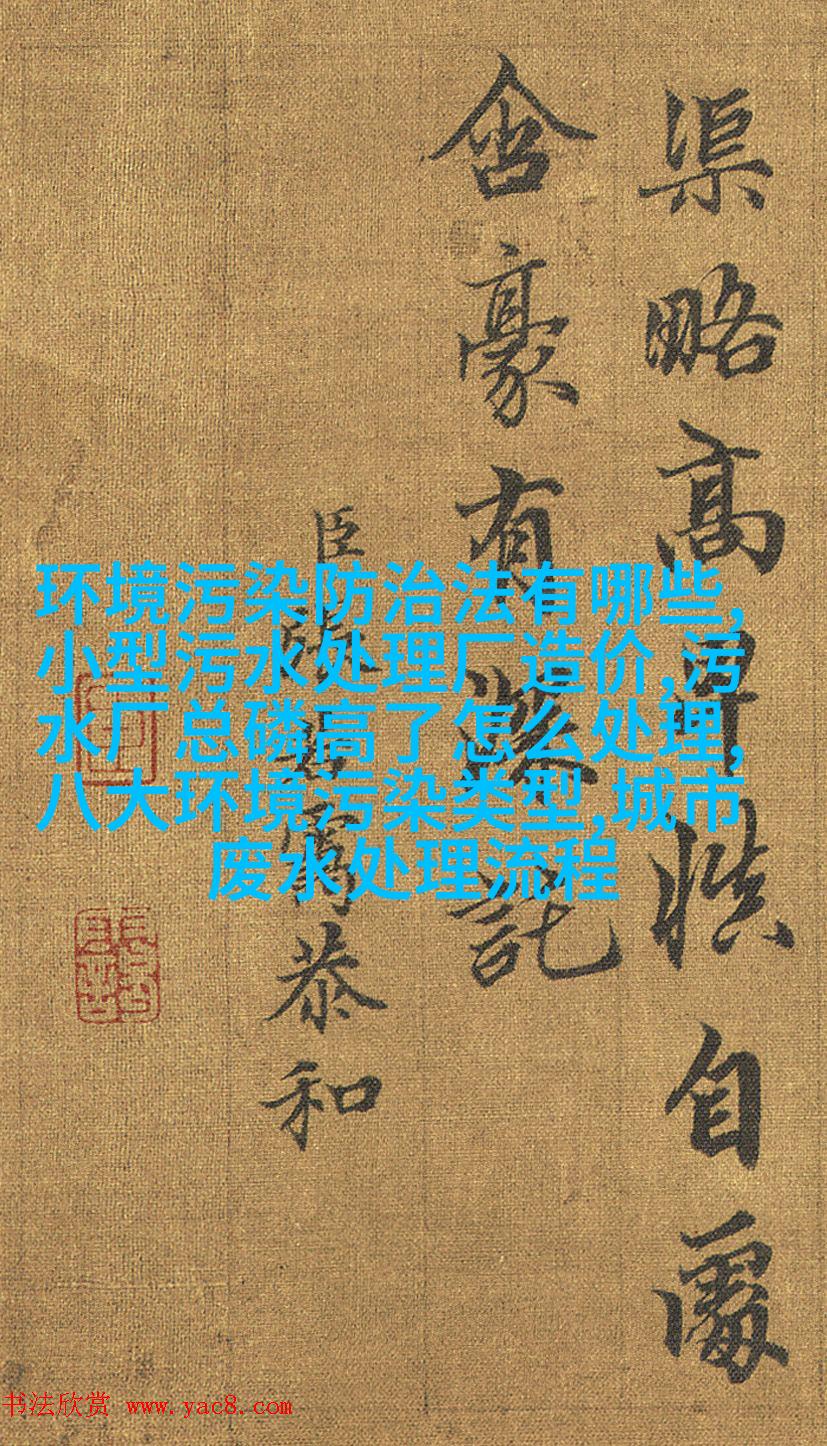 渠略高卑慎自處
含豪有託
臣張靄恭和
环境污染防治法有哪些,
小型污水处理厂造价,污
水厂总磷高了怎么处理,
八大环境污染类型,城市
废水处理流程
书法欣赏 www.yac8.com